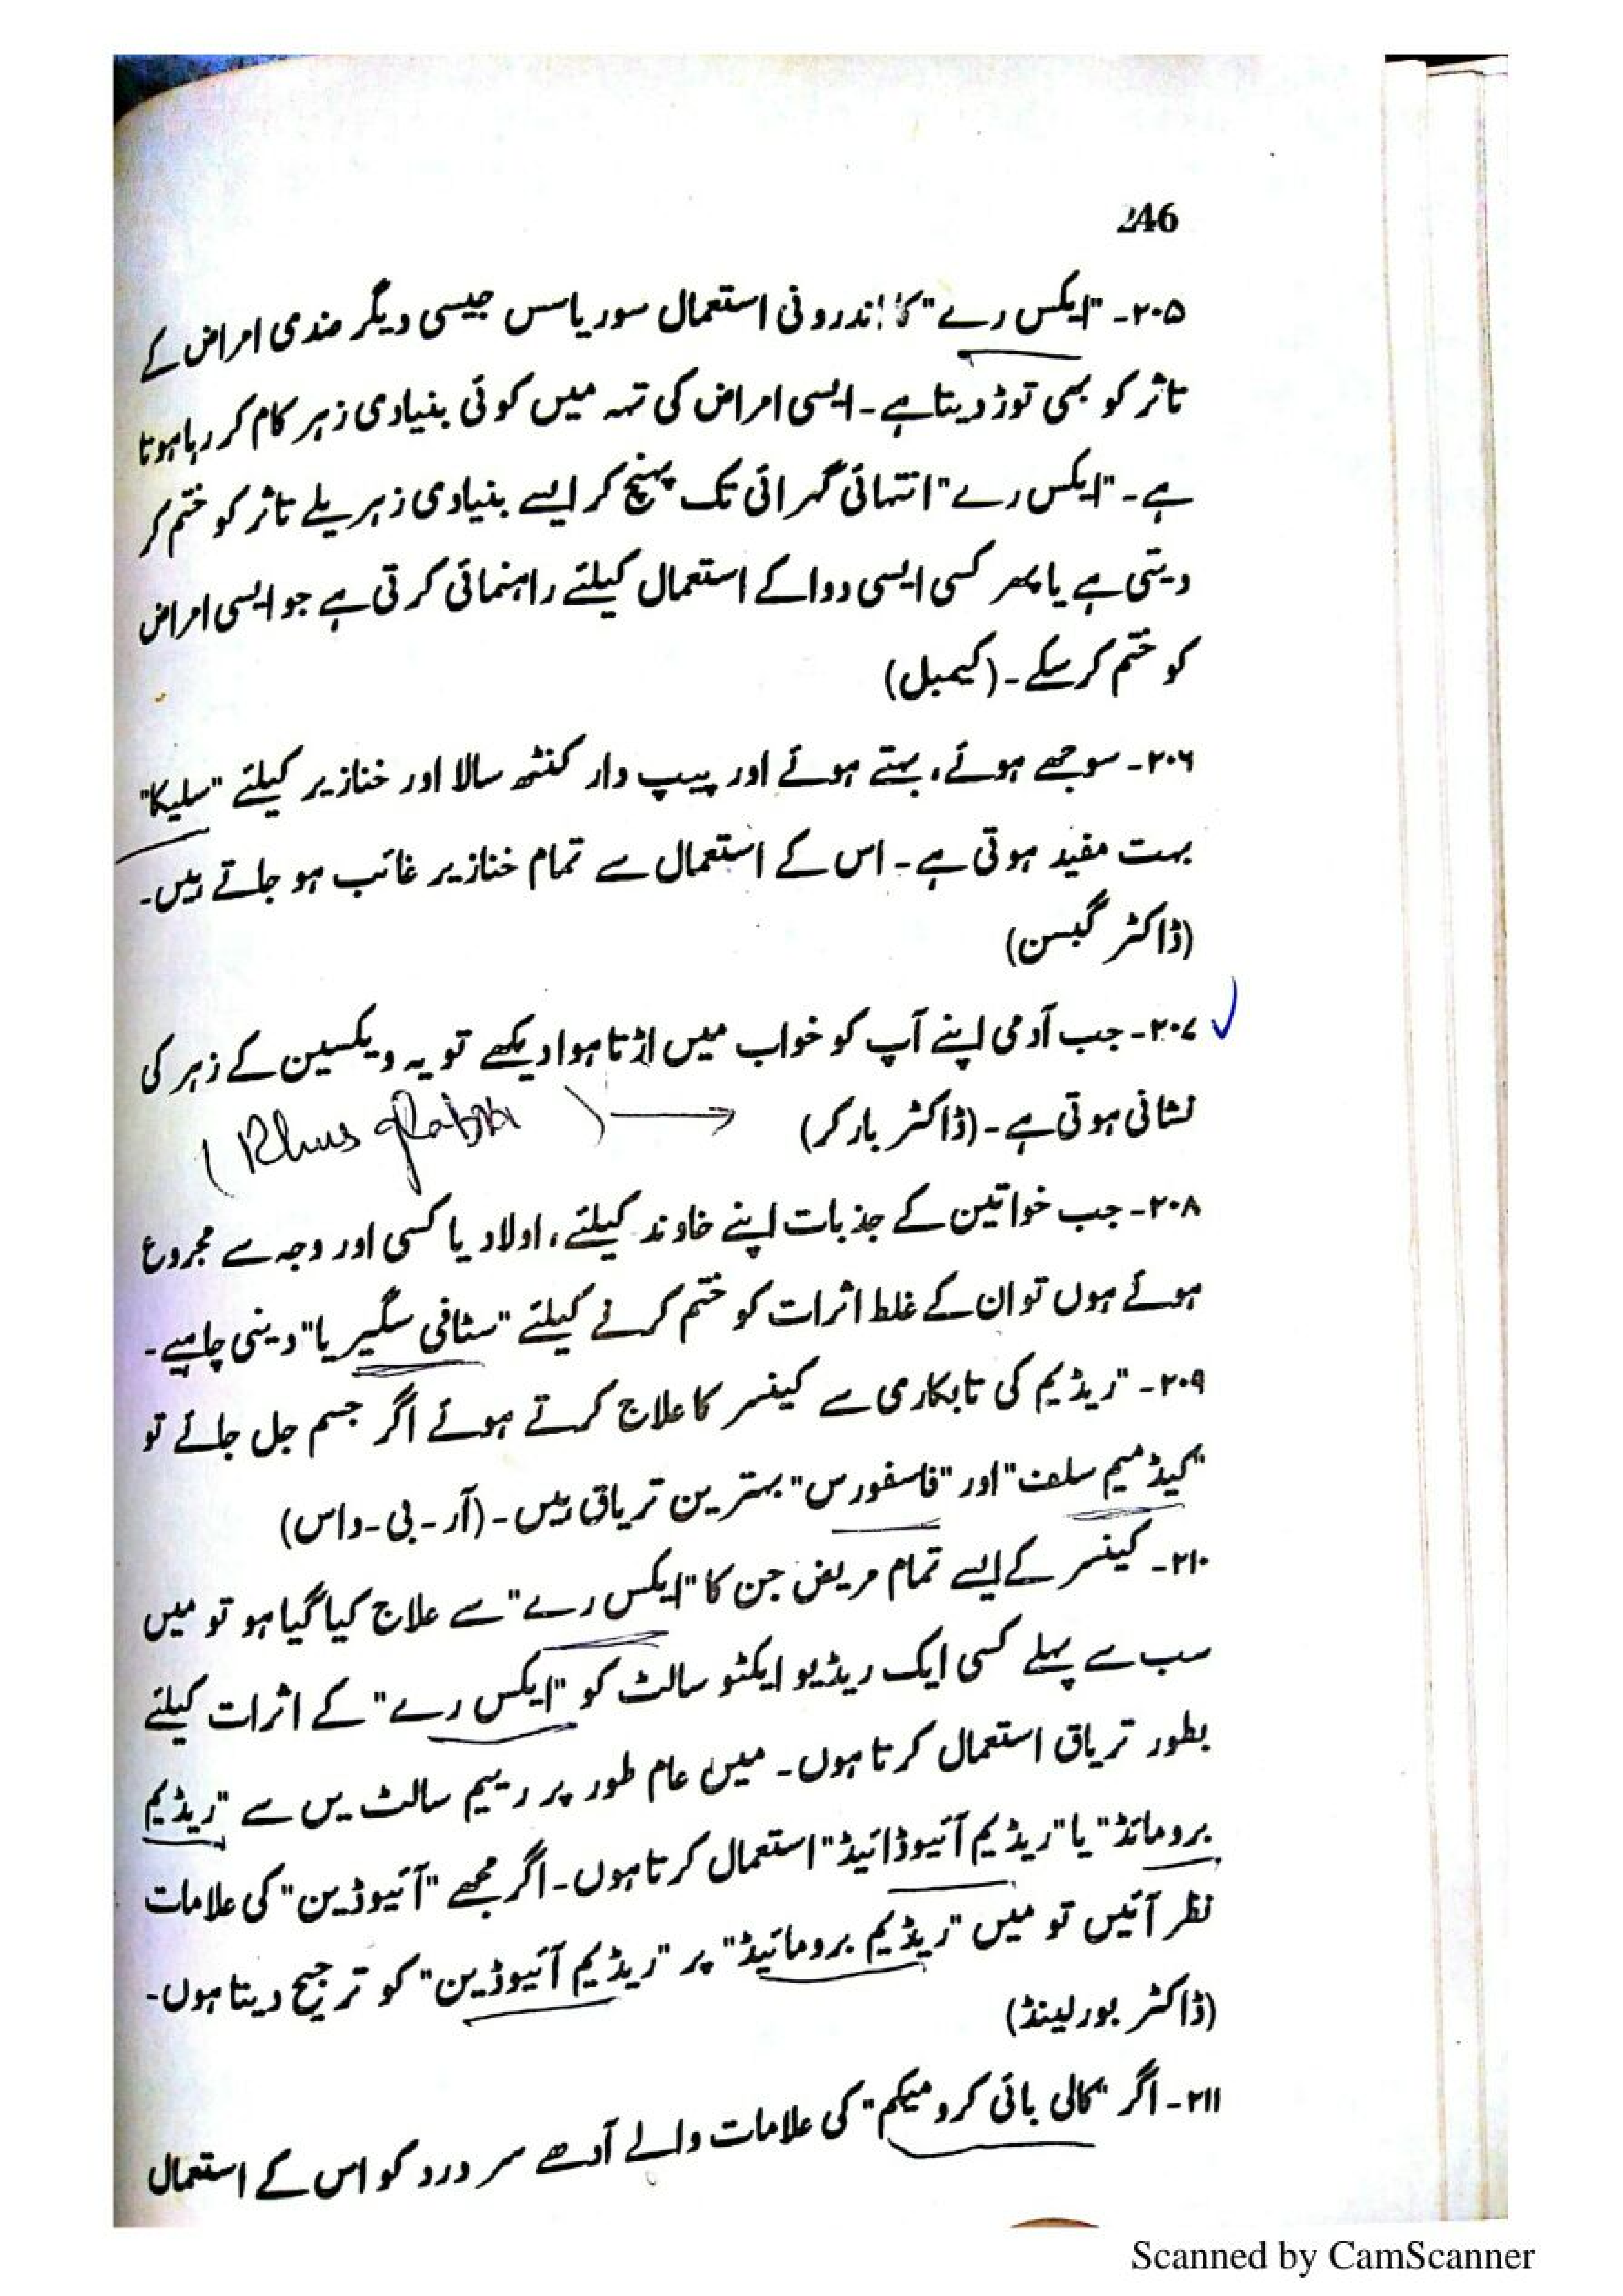 246
۲۰۵۔ "ایکس رے" کا اندرونی استعمال سوریاسس جیسی دیگر ضدی امراض کے
تاثر کو بھی توڑ دیتا ہے۔ ایسی امراض کی تہہ میں کوئی بنیادی زہر کام کر رہا ہوتا
ہے۔ "ایکس رے" انتہائی گہرائی تک پہنچ کر ایسے بنیادی زہریلے تاثر کو ختم کر
دیتی ہے یا پھر کسی ایسی دوا کے استعمال کیلئے راہنمائی کرتی ہے جو ایسی امراض
کو ختم کر سکے۔ (کیمبل)
۲۰۶۔ سوجھے ہوئے، بہتے ہوئے اور پیپ دار کنٹھ سالا اور خنازیر کیلئے "سلیکا"
بہت مفید ہوتی ہے۔ اس کے استعمال سے تمام خنازیر غائب ہو جاتے ہیں۔
(ڈاکٹر گبسن)
۲۰۷۔ جب آدمی اپنے آپ کو خواب میں اڑتا ہوا دیکھے تو یہ ویکسین کے زہر کی
نشانی ہوتی ہے۔ (ڈاکٹر بارکر)
(Rhus glabra)
۲۰۸۔ جب خواتین کے جذبات اپنے خاوند کیلئے، اولاد یا کسی اور وجہ سے مجروع
ہوئے ہوں تو ان کے غلط اثرات کو ختم کرنے کیلئے "سٹافی سگیریا" دینی چاہیے۔
۲۰۹۔ "ریڈیم کی تابکاری سے کینسر کا علاج کرتے ہوئے اگر جسم جل جائے تو
"کیڈمیم سلف" اور "فاسفورس" بہترین تریاق ہیں۔ (آر۔بی۔داس)
۲۱۰۔ کینسر کے ایسے تمام مریض جن کا "ایکس رے" سے علاج کیا گیا ہو تو میں
سب سے پہلے کسی ایک ریڈیو ایکٹو سالٹ کو "ایکس رے" کے اثرات کیلئے
بطور تریاق استعمال کرتا ہوں۔ میں عام طور پر ریسیم سالٹ یس سے "ریڈیم
برومائڈ" یا "ریڈیم آئیوڈائیڈ" استعمال کرتا ہوں۔ اگر مجھے "آئیوڈین" کی علامات
نظر آئیں تو میں "ریڈیم برومائیڈ" پر "ریڈیم آئیوڈین" کو ترجیح دیتا ہوں۔
(ڈاکٹر بورلینڈ)
۲۱۱۔ اگر "کالی بائی کرومیکم" کی علامات والے آدھے سر درد کو اس کے استعمال
Scanned by CamScanner